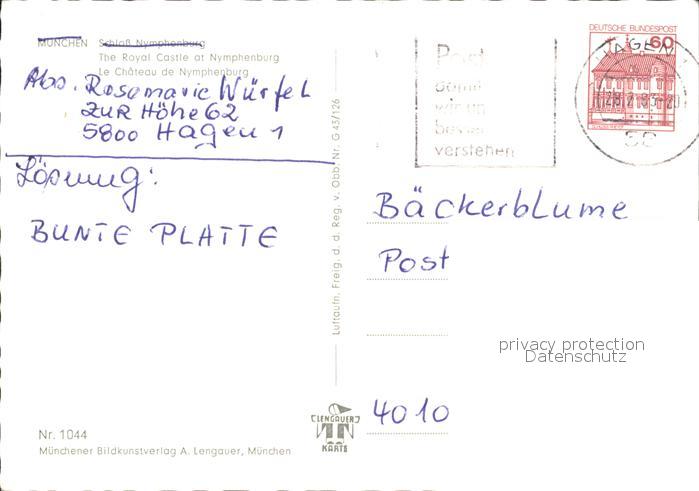 MÜNCHEN Schloß Nymphenburg
The Royal Castle at Nymphenburg
Le Château de Nymphenburg
Abs. Rosemarie Würfel
ZUR Höhe 62
5800 Hagen 1
Lösung:
BUNTE PLATTE
Nr. 1044
Münchener Bildkunstverlag A. Lengauer, München
Luftaufn. Freig. d. d. Reg. v. Obb. Nr. G 43/126
LENGAUER
KARTE
Post
damit
wir uns
besser
verstehen
DEUTSCHE BUNDESPOST
60
HAGEN
58
Bäckerblume
Post
privacy protection
Datenschutz
4010